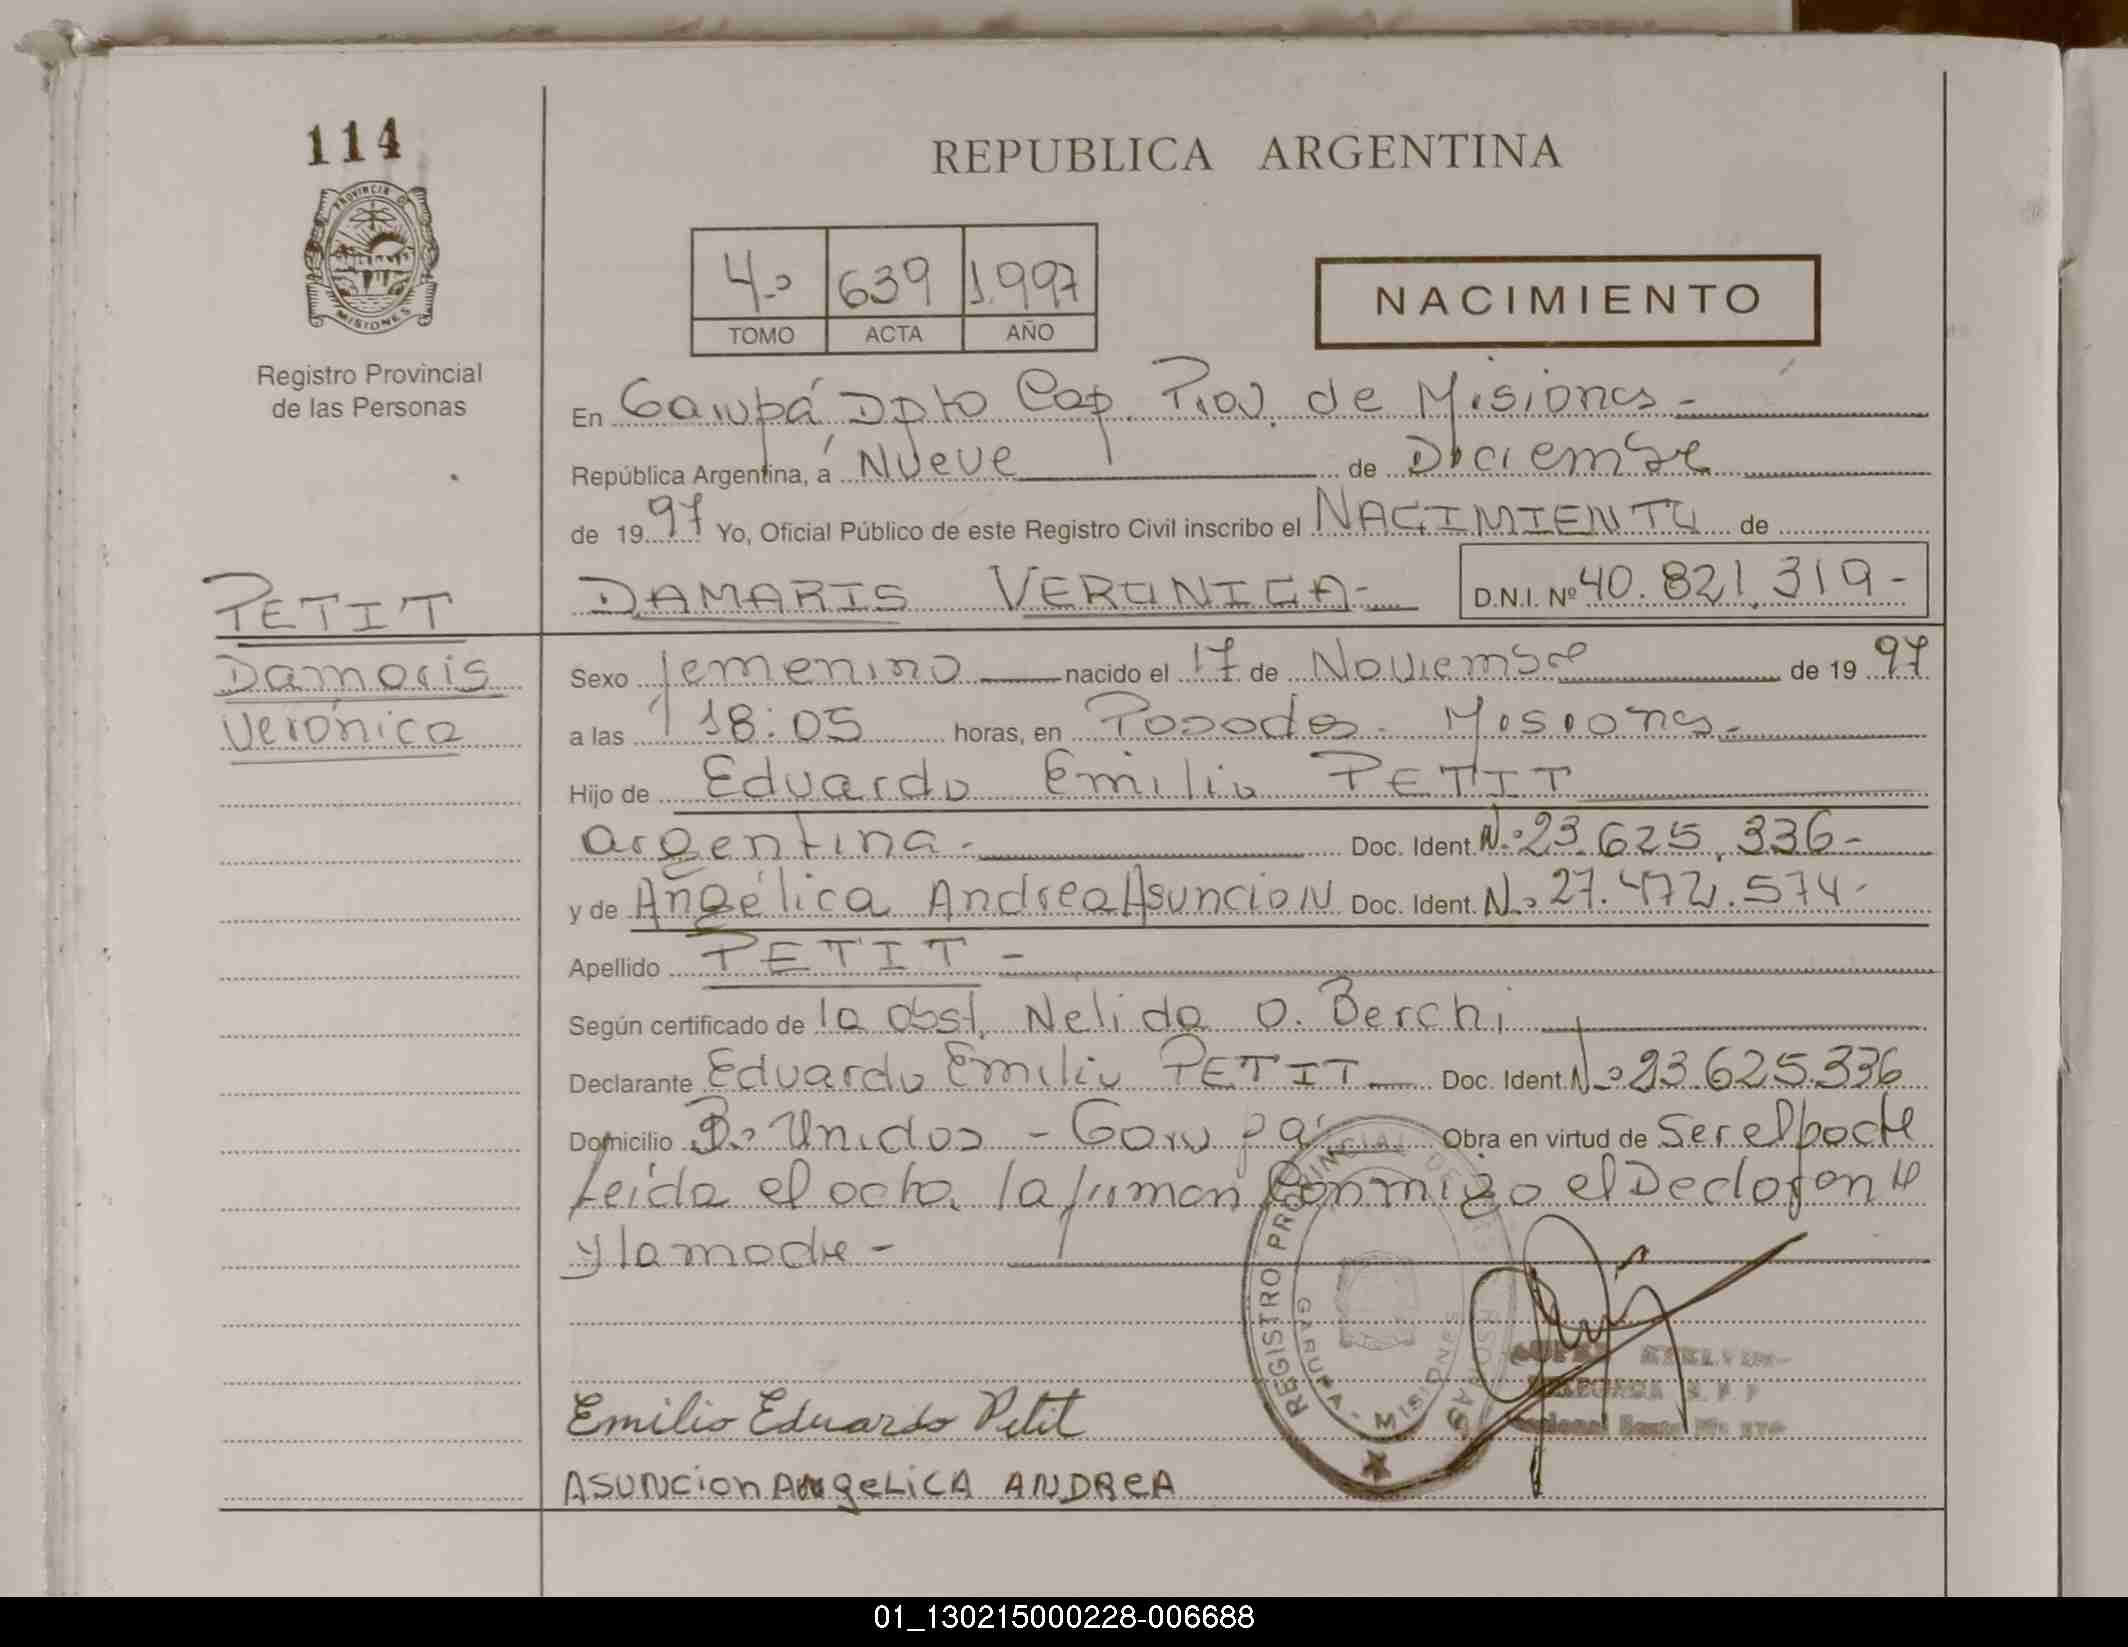 114
REPUBLICA ARGENTINA
PROVINCIA DE
MISIONES
Registro Provincial
de las Personas
4º 639 1.997
TOMO ACTA AÑO
NACIMIENTO
En Garupá Dpto Cap. Prov. de Misiones-
República Argentina, a Nueve de Diciembre
de 1997 Yo, Oficial Público de este Registro Civil inscribo el NACIMIENTO de
DAMARIS VERONICA- D.N.I. Nº 40.821.319-
PETIT
Damaris
Verónica
Sexo femenino nacido el 17 de Noviembre de 1997
a las 18:05 horas, en Posadas - Misiones-
Hijo de Eduardo Emilio PETIT
argentina- Doc. Ident. Nº 23.625.336-
y de Angélica Andrea Asuncion Doc. Ident. Nº 27.472.574-
Apellido PETIT -
Según certificado de la obst. Nelida O. Berchi
Declarante Eduardo Emilio PETIT Doc. Ident. Nº 23.625.336
Domicilio Bº Unidos - Garupá Obra en virtud de Ser el padre
Leída el acta, la firman conmigo el Declarante
y la madre-
REGISTRO PROVINCIAL DE LAS PERSONAS
GARUPA - MISIONES
Emilio Eduardo Petit
ASUNCION ANgeLiCA ANDReA
01_130215000228-006688